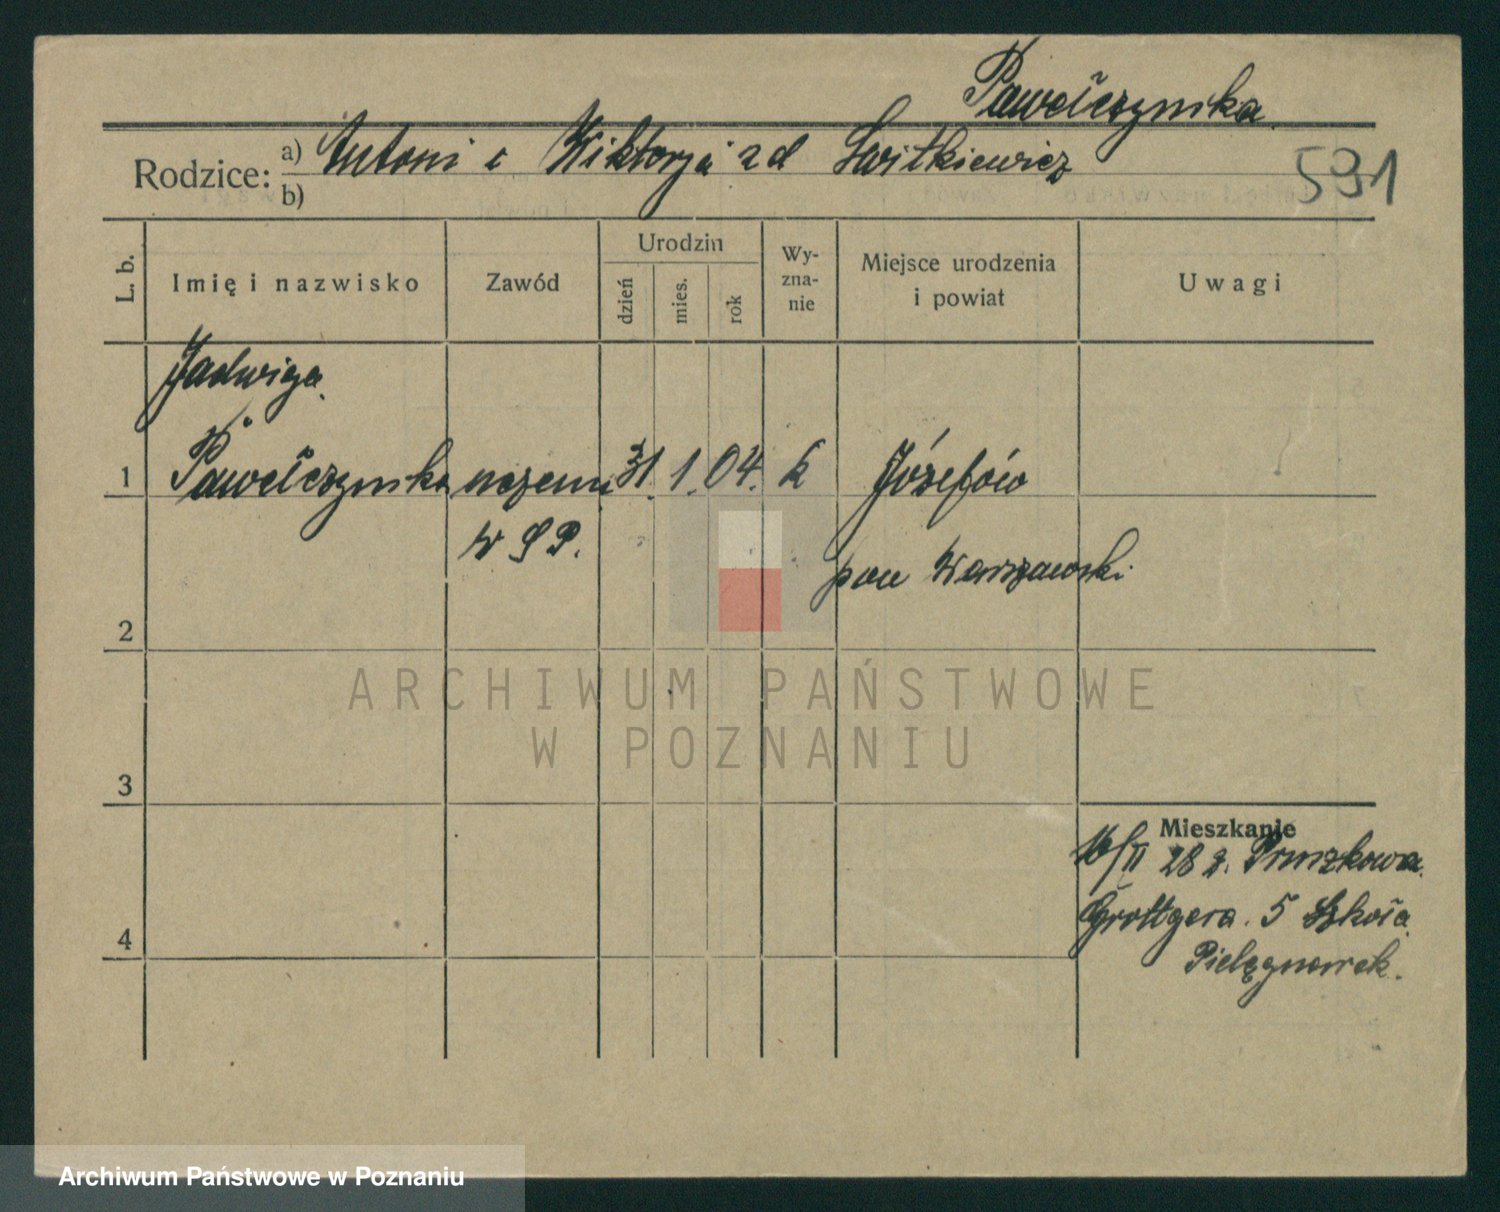 Pawełczynska
Rodzice: a) Antoni i Wiktorja zd Świtkiewicz
b)
591
L. b. Imię i nazwisko Zawód Urodzin dzień mies. rok Wy-zna-nie Miejsce urodzenia i powiat Uwagi
Jadwiga
1 Pawełczynska uczenn 31. 1. 04. k Józefów
w S P.
pow Warszawski
2
3
Mieszkanie
16/II 28 z. Pruszkowa
Grottgera. 5 Szkoła
4
Pielęgniarek.
ARCHIWUM PAŃSTWOWE
W POZNANIU
Archiwum Państwowe w Poznaniu